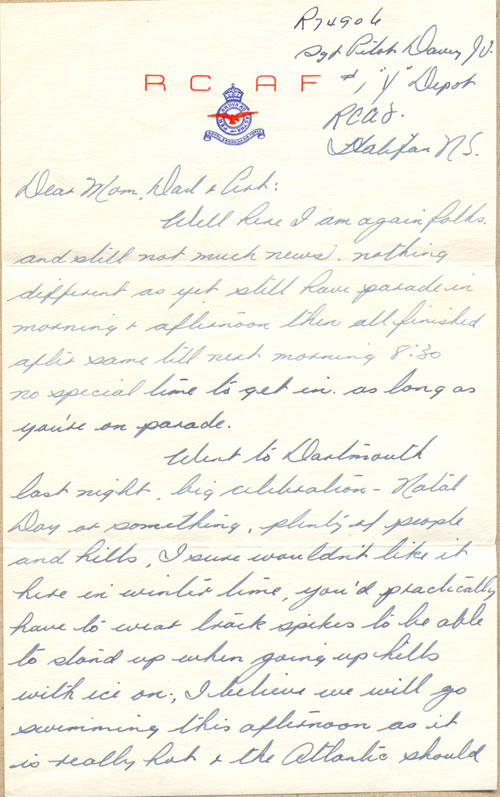 R74906
Sgt Pilot Davey J.V.
#1 "Y" Depot
RCAF.
Halifax N.S.
R C A F
Dear Mom, Dad & Art:
Well here I am again folks.
and still not much news. nothing
different as yet still have parade in
morning & afternoon then all finished
after same till next morning 8:30
no special time to get in. as long as
you're on parade.
Went to Dartmouth
last night, big celebration - Natal
Day or something, plenty of people
and hills, I sure wouldn't like it
here in winter time, you'd practically
have to wear track spikes to be able
to stand up when going up hills
with ice on., I believe we will go
swimming this afternoon as it
is really hot & the Atlantic should